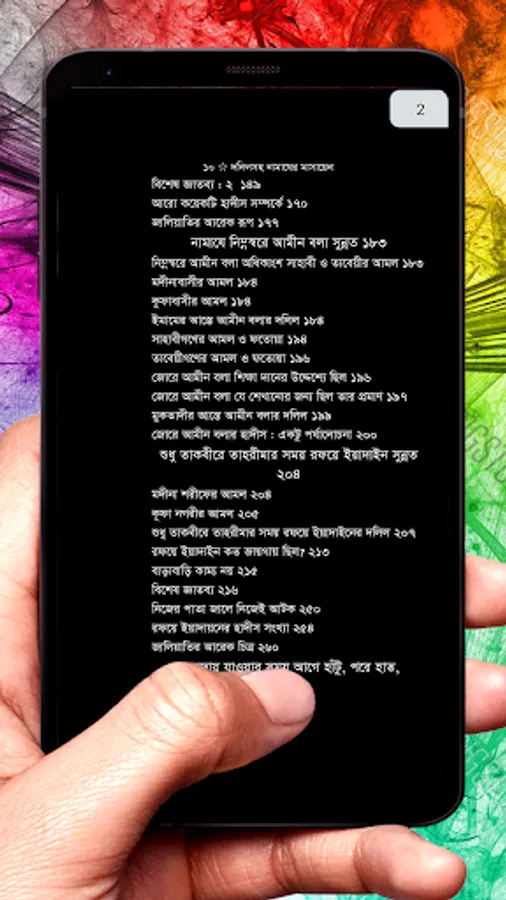 2
১০ ☆ দলিলসহ নামাযের মাসায়েল
বিশেষ জ্ঞাতব্য : ২ ১৪৯
আরো কয়েকটি হাদীস সম্পর্কে ১৭০
জালিয়াতির আরেক রূপ ১৭৭
নামাযে নিম্নস্বরে আমীন বলা সুন্নত ১৮৩
নিম্নস্বরে আমীন বলা অধিকাংশ সাহাবী ও তাবেয়ীর আমল ১৮৩
মদীনাবাসীর আমল ১৮৪
কুফাবাসীর আমল ১৮৪
ইমামের আস্তে আমীন বলার দলিল ১৮৪
সাহাবীগণের আমল ও ফতোয়া ১৯৪
তাবেয়ীগণের আমল ও ফতোয়া ১৯৬
জোরে আমীন বলা শিক্ষা দানের উদ্দেশ্যে ছিল ১৯৬
জোরে আমীন বলা যে শেখানোর জন্য ছিল তার প্রমাণ ১৯৭
মুকতাদীর আস্তে আমীন বলার দলিল ১৯৯
জোরে আমীন বলার হাদীস : একটু পর্যালোচনা ২০০
শুধু তাকবীরে তাহরীমার সময় রফয়ে ইয়াদাইন সুন্নত
২০৪
মদীনা শরীফের আমল ২০৪
কূফা নগরীর আমল ২০৫
শুধু তাকবীরে তাহরীমার সময় রফয়ে ইয়াদাইনের দলিল ২০৭
রফয়ে ইয়াদাইন কত জায়গায় ছিল? ২১৩
বাড়াবাড়ি কাম্য নয় ২১৫
বিশেষ জ্ঞাতব্য ২১৬
নিজের পাতা জালে নিজেই আটক ২৫০
রফয়ে ইয়াদায়নের হাদীস সংখ্যা ২৫৪
জালিয়াতির আরেক চিত্র ২৬০
যাওয়ার সময় আগে হাঁটু, পরে হাত,